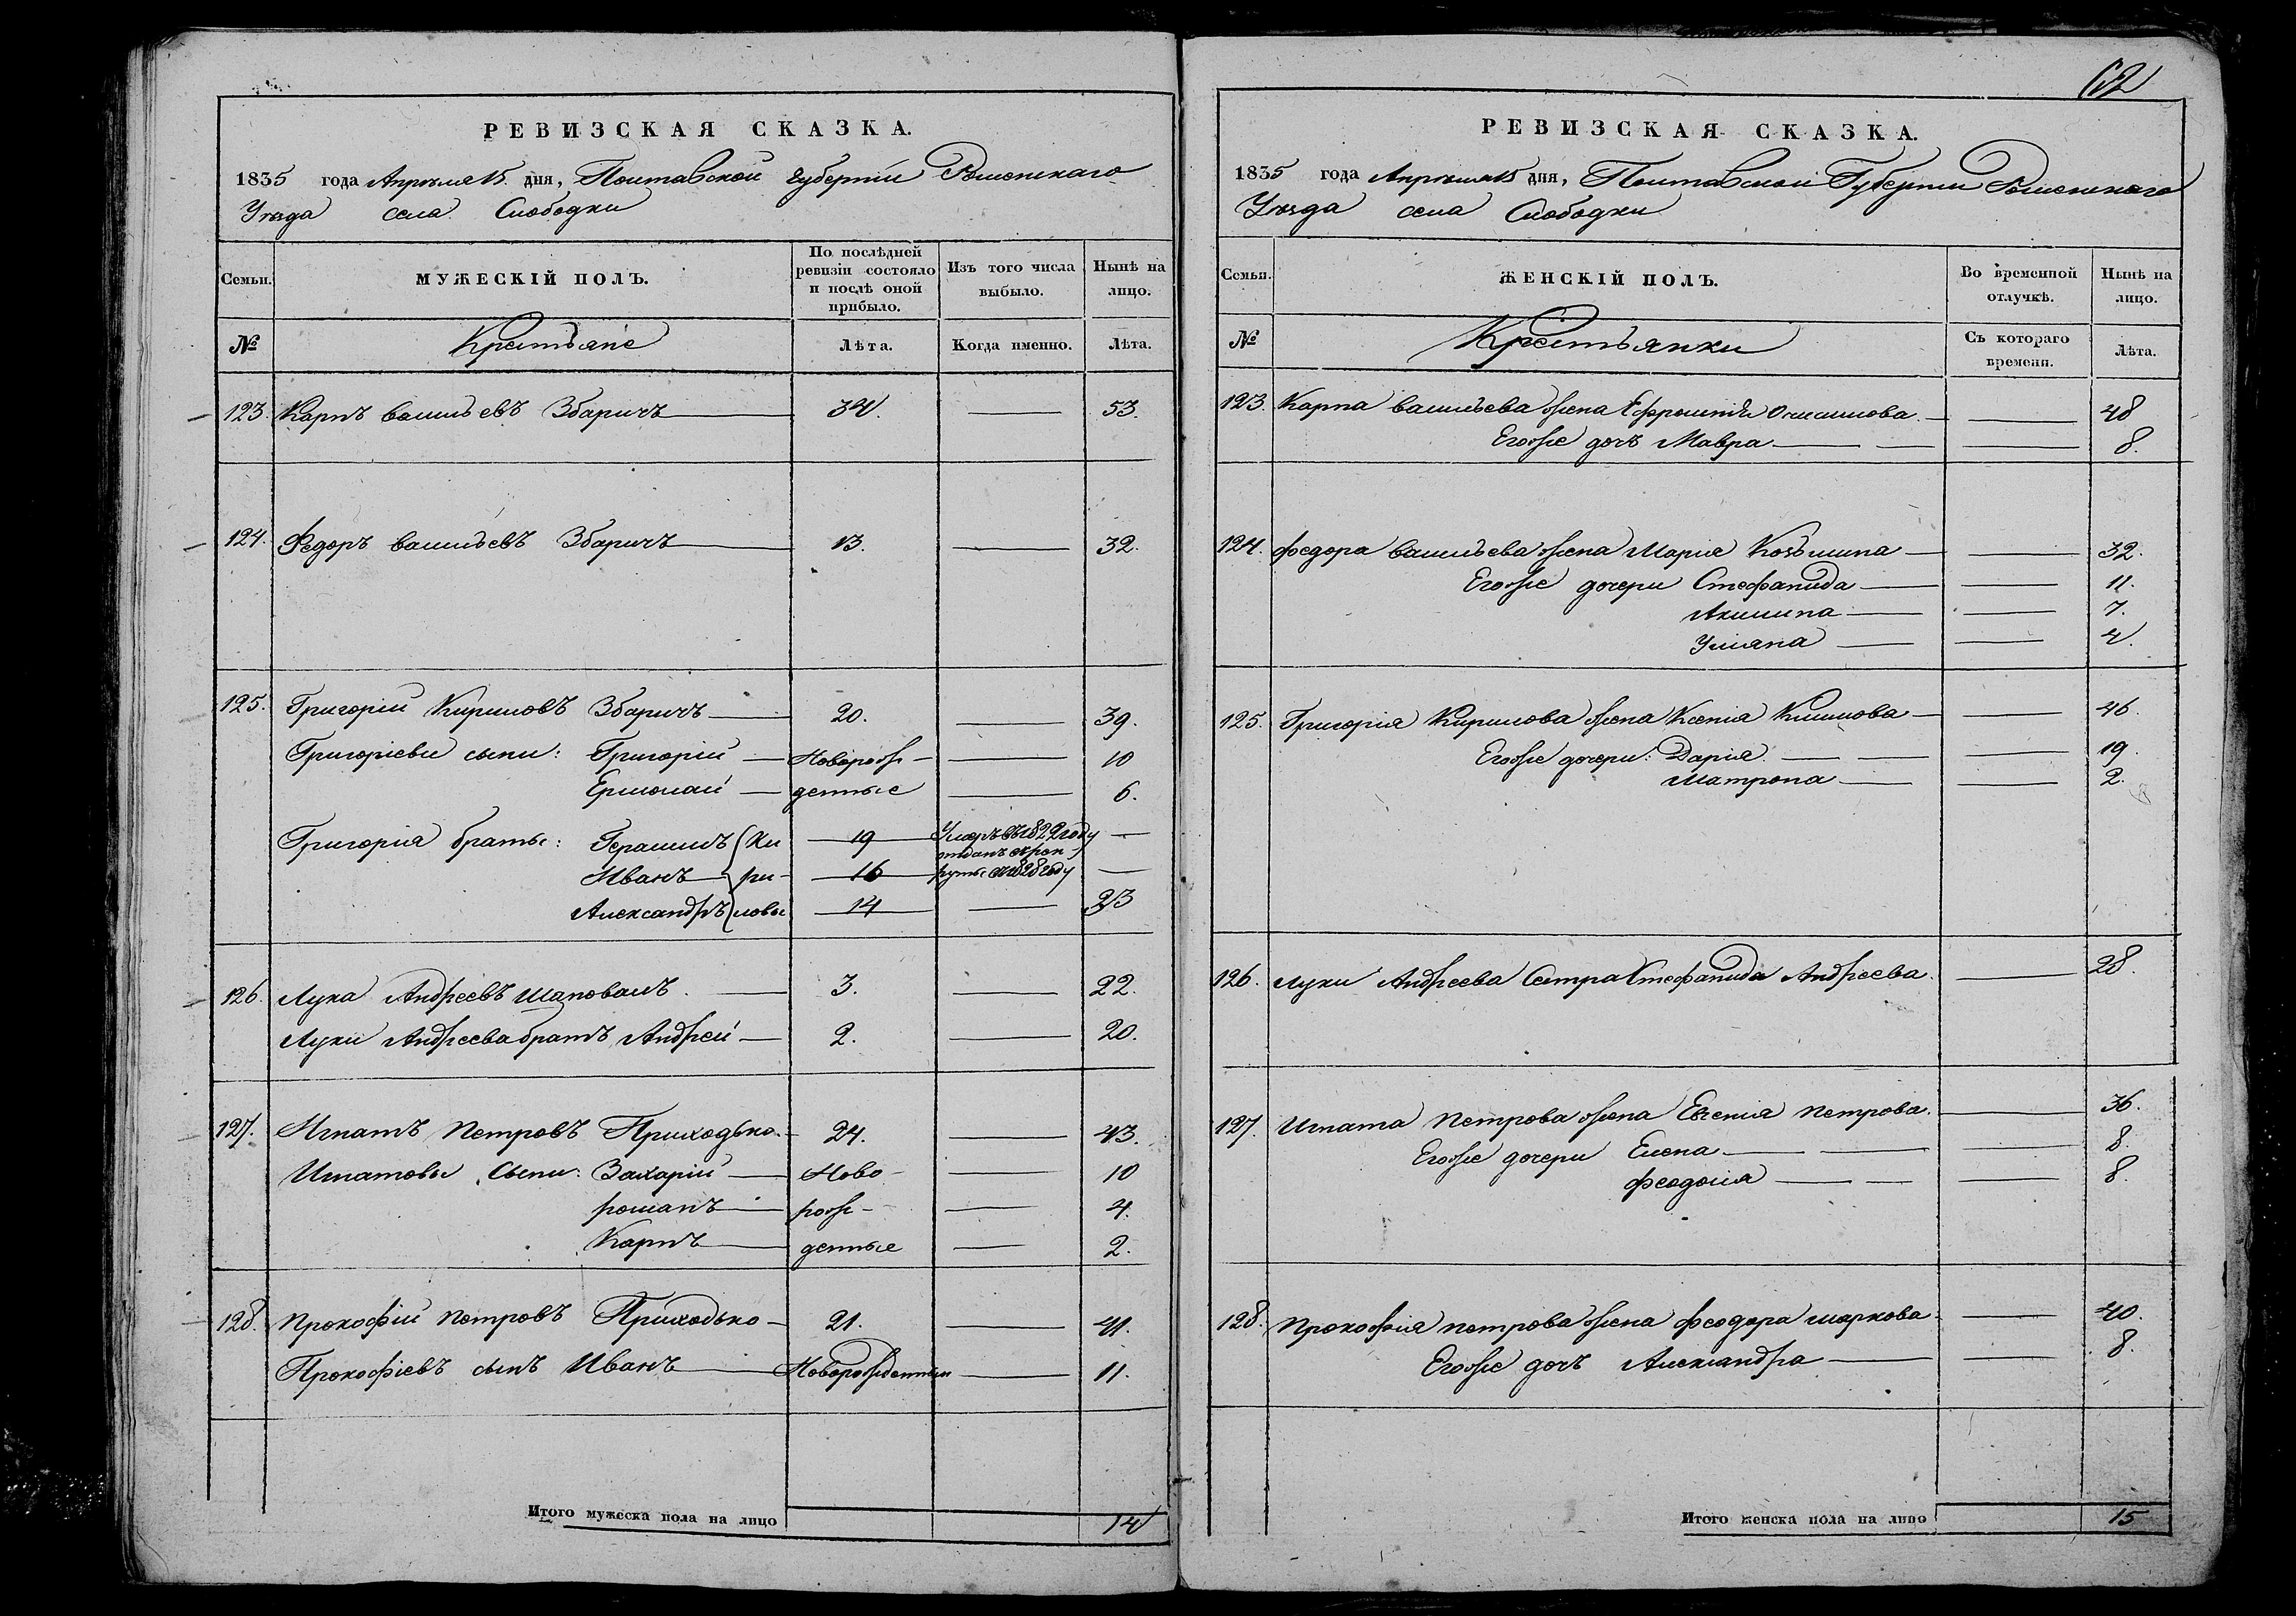 62
РЕВИЗСКАЯ СКАЗКА.
1835 года Апреля 15 дня, Полтавской Губернии Роменскаго
Уезда села Слободки
Семьи. МУЖЕСКІЙ ПОЛЪ. По послѣдней ревизіи состояло и послѣ оной прибыло. Изъ того числа выбыло. Нынѣ на лицо.
№ Крестьяне Лѣта. Когда именно. Лѣта.
123. Карпъ васильевъ Збаричъ 34. 53.
124. Федоръ васильевъ Збаричъ 13. 32.
125. Григорій Кириловъ Збаричъ 20. 39.
Григоріевы сыни: Григорій Новорож- 10
Ермолай денные 6.
Григорія братье: Герасимъ Ки 19 Умеръ въ 1822 году
отданъ в рек-
Иванъ ри- 16 руты в 1828 году
Александръ ловы 14 23
126. Лука Андреевъ Шаповалъ 3. 22.
Луки Андреева братъ Андрей 2. 20.
127. Игнатъ Петровъ Приходько. 24. 43.
Игнатовы Сыни: Захарій Ново- 10
романъ рож- 4.
Карпъ денные 2.
128. Прокофій Петровъ Приходько 21. 41.
Прокофіевъ сынъ Иванъ Новорожденный 11.
Итого мужеска пола на лицо 14
РЕВИЗСКАЯ СКАЗКА.
1835 года Апреля 15 дня, Полтавской Губернии Роменскаго
Уезда села Слободки
Семьи. ЖЕНСКІЙ ПОЛЪ. Во временной отлучкѣ. Нынѣ на лицо.
№ Крестьянки Съ котораго времени. Лѣта.
123. Карпа васильева жена 48
Егоже дочъ Мавра 8.
124. федора васильева жена Марія Козьмина 32.
Егоже дочери Стефанида 11.
Акилина 7.
Уліяна 4.
125. Григорія Кирилова жена Ксенія Климова 46.
Егоже дочери: Дарія 19.
Матрона 2.
126. Луки Андреева Сестра Стефанида Андреева. 28.
127. Игната Петрова жена Евгенія петрова. 36.
Егоже дочери Елена 8.
феодосия 8.
128. Прокофія петрова жена феодора маркова 40.
Егоже дочъ Александра 8.
Итого женска пола на лицо 15